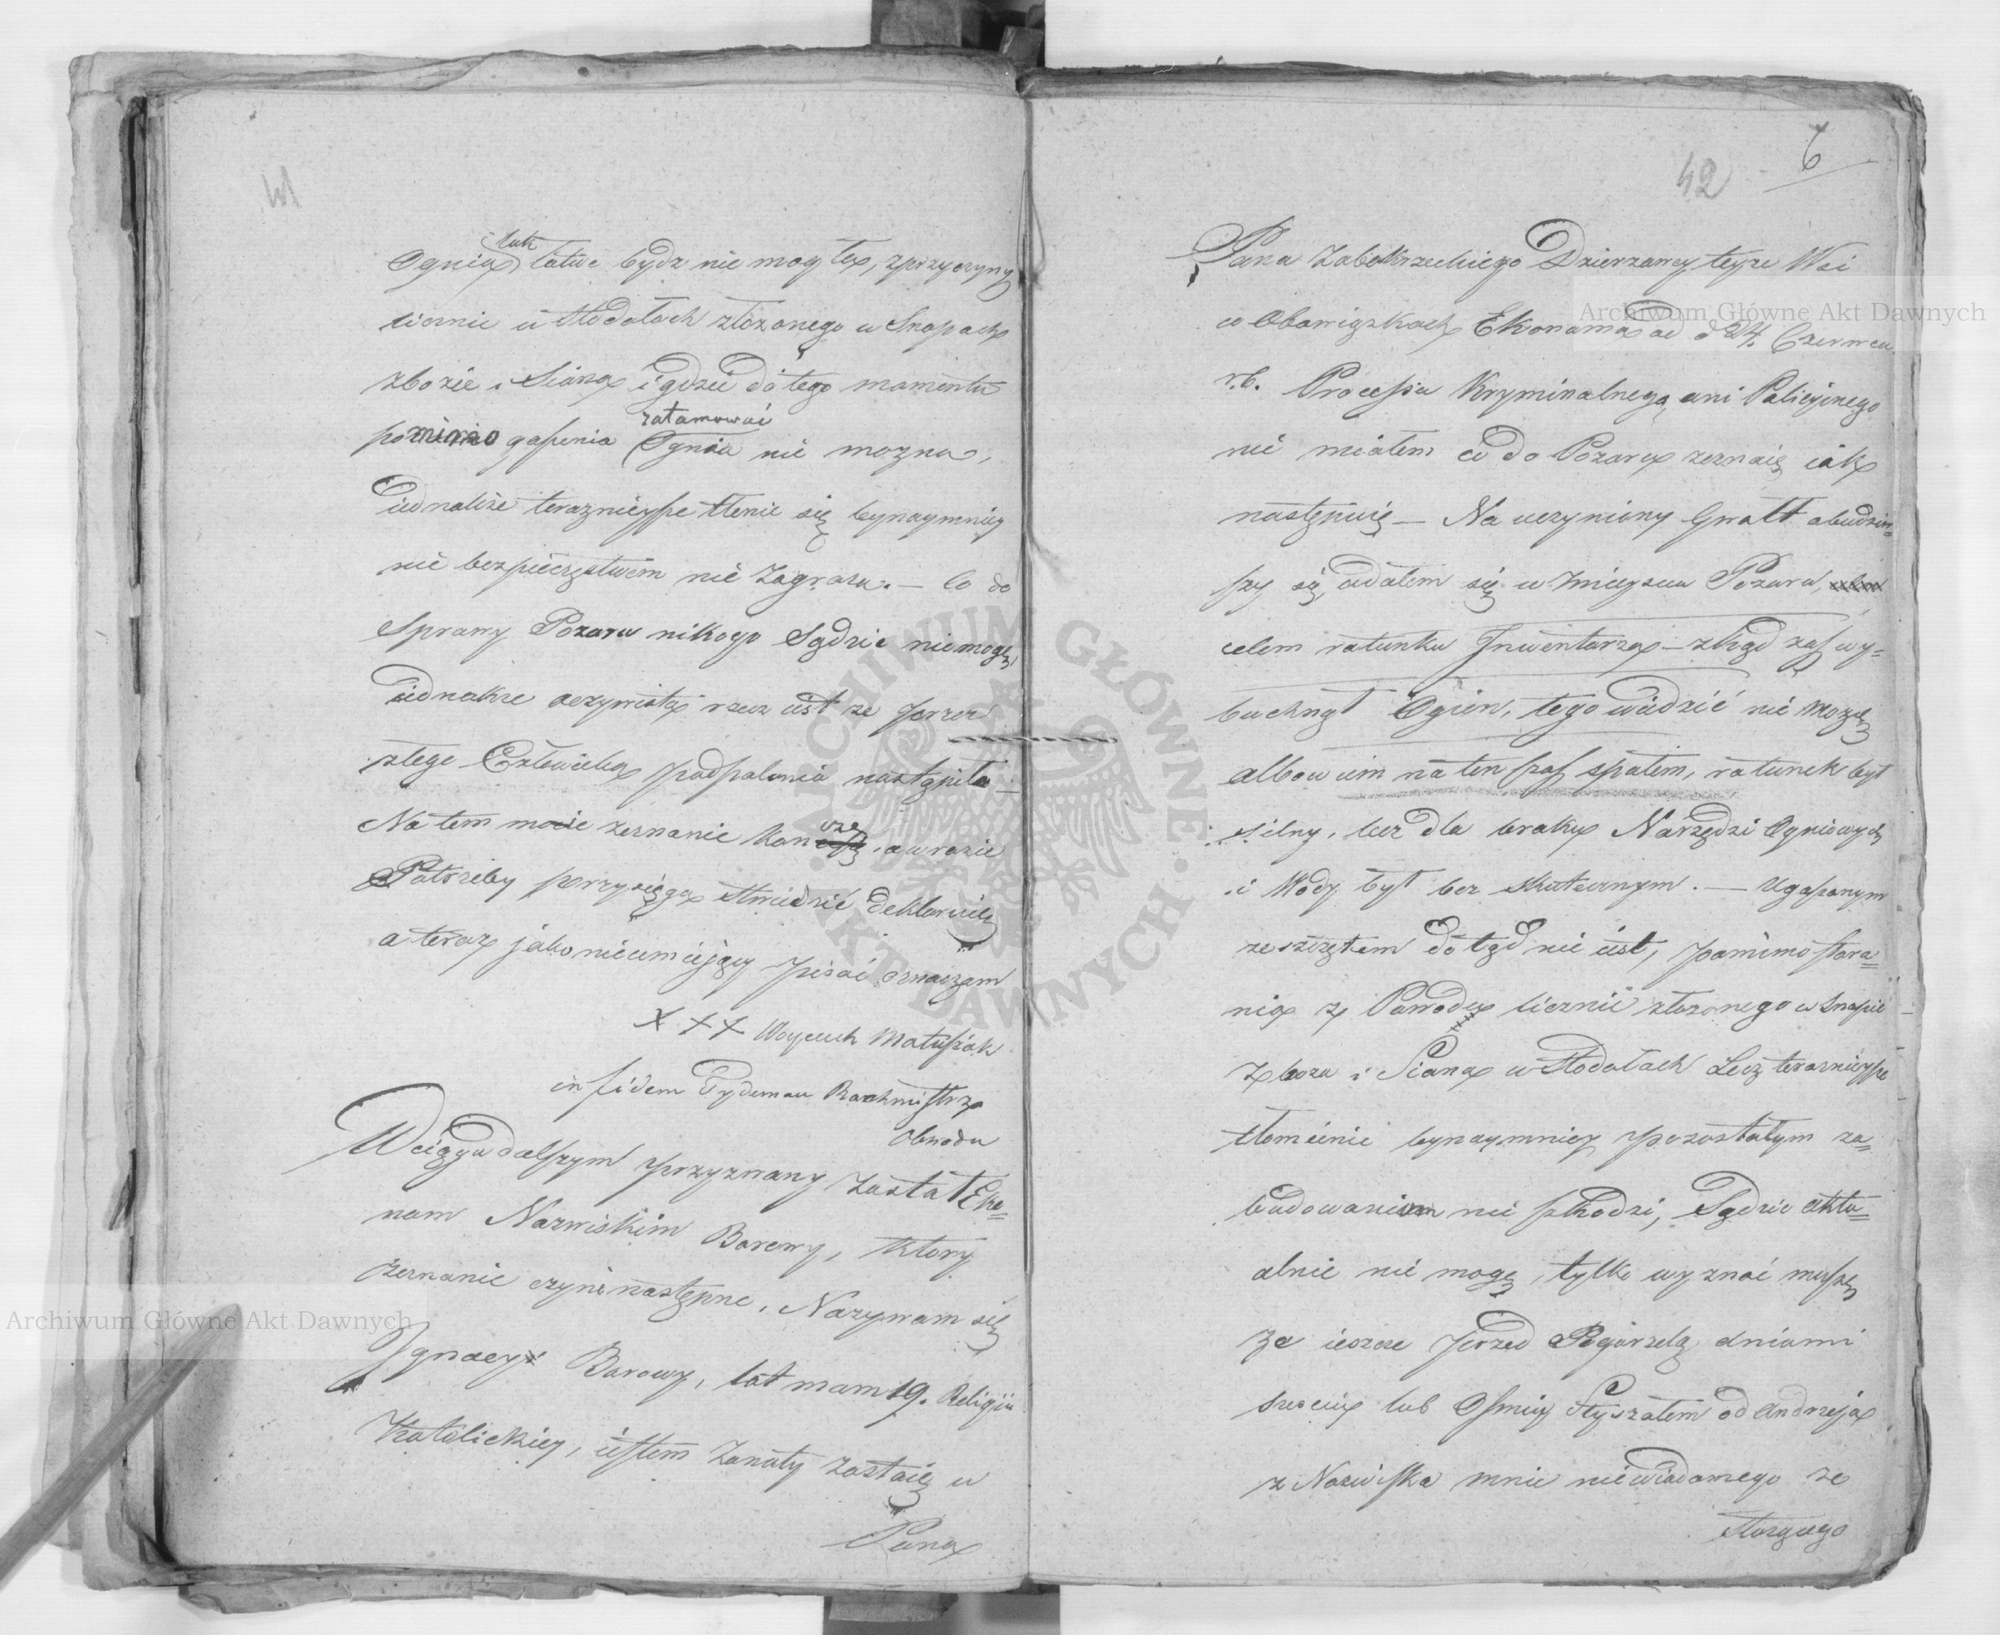 Ognia tak łatwe bydz nie mogłex, zprzyczyny
licznie w Stodołach złożonego w Snopach
zboże i Siana i gdzie do tego momentu
pomimo gaszenia Ognia zatamować nie mozna,
iednakże teraznieysze tlenie się bynaymniey
nie bezpieczęstwem nie Zagraża. — Co do
Sprawy Pozaru nikogo Sądzić niemogę,
iednakże oczywistą rzecz iest ze przez
złego Człowieka podpalenia nastąpiło —
Na tem moie zeznanie kończę, a w razie
Potrzeby przysięgą stwierdzić deklaruię
a teraz jako nieumiejący pisać oznaczam
X + + Woyciech Matuszak
in fidem Tydeman Rachmistrz
Obwodu
W ciągu dalszym przyznany został Eko=
nom Nazwiskim Borowy, który
zeznanie czyni następne, Nazywam się
Ignacy Borowy, lat mam 19. Religii
Katolickiey, iestem Zonaty zostaię w
Pana
42
6
Pana Zabokrzeckiego Dzierzawcy teyze Wsi
w Obowiązkach Ekonoma od d 24. Czerwca
r.b. Processu Kryminalnego, ani Policyinego
nie miałem co do Pozaru zeznaię iak
następuię — Na uczyniony Gwałt obudziw=
szy się, udałem się w mieysca Pozaru,
celem ratunku Inwentarza — zkąd zaś wy=
buchnął Ogień, tego widzieć nie mogę
albowiem na ten czas spałem, ratunek był
silny, lecz dla braku Narzędzi Ogniowych
i Wody był bez skutecznym. — Ugaszonym
ze szczętem dotąd nie iest, pomimo stara=
nia z Powodu licznie złozonego w Snopie
Zboza i Siana w Stodołach Lecz teraznieysze
tlomienie bynaymniey pozostałym za=
budowaniom nie szkodzi, Sądzić aktu=
alnie nie mogę, tylko wyznać muszę
ze ieszcze przed Pogorzelą dniami
sześciu lub Ośmiu Słyszałem od Andrzeja
z Nazwiska mnie niewiadomego ze
starszego
Archiwum Główne Akt Dawnych
Archiwum Główne Akt Dawnych
ARCHIWUM GŁÓWNE AKT DAWNYCH